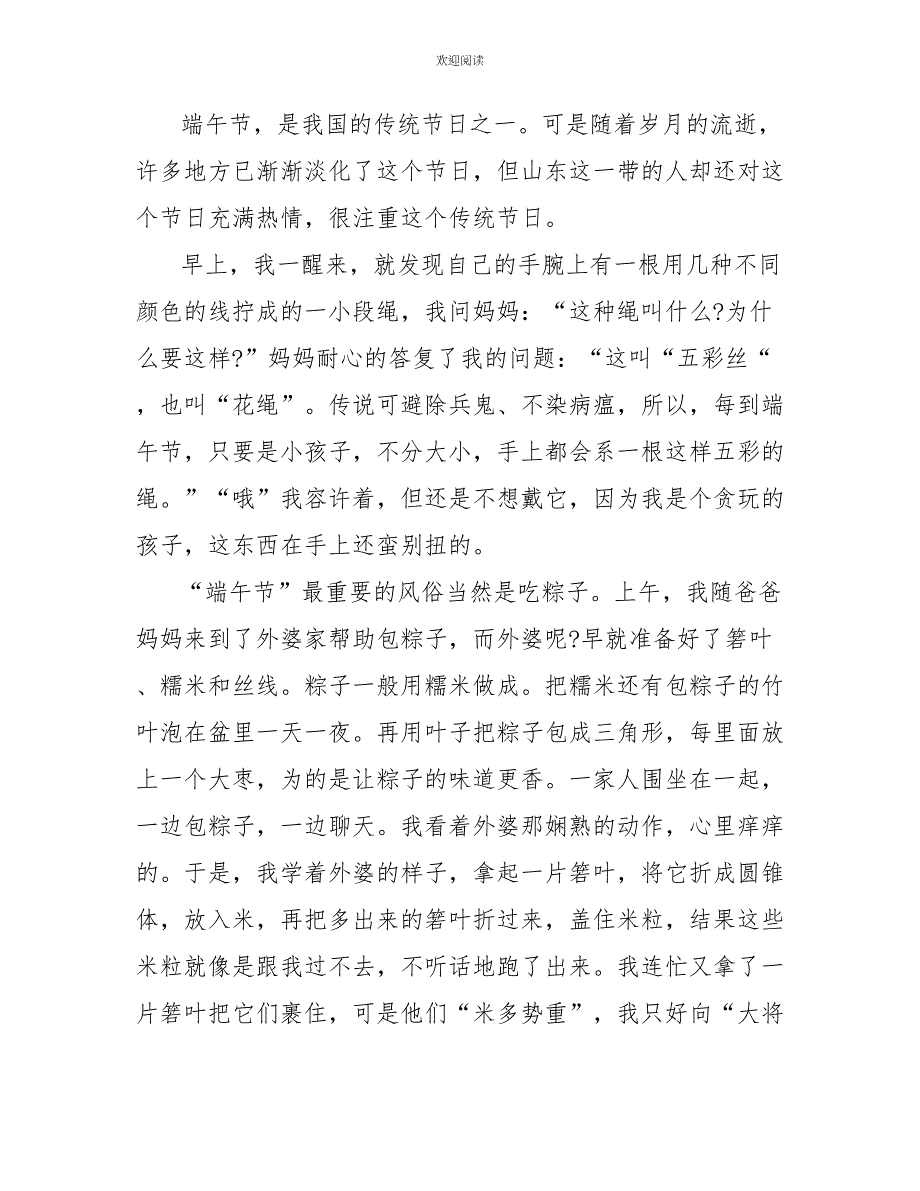 欢迎阅读
端午节，是我国的传统节日之一。可是随着岁月的流逝，
许多地方已渐渐淡化了这个节日，但山东这一带的人却还对这
个节日充满热情，很注重这个传统节日。
早上，我一醒来，就发现自己的手腕上有一根用几种不同
颜色的线拧成的一小段绳，我问妈妈：“这种绳叫什么?为什
么要这样?”妈妈耐心的答复了我的问题：“这叫“五彩丝“
，也叫“花绳”。传说可避除兵鬼、不染病瘟，所以，每到端
午节，只要是小孩子，不分大小，手上都会系一根这样五彩的
绳。”“哦”我容许着，但还是不想戴它，因为我是个贪玩的
孩子，这东西在手上还蛮别扭的。
“端午节”最重要的风俗当然是吃粽子。上午，我随爸爸
妈妈来到了外婆家帮助包粽子，而外婆呢?早就准备好了箬叶
、糯米和丝线。粽子一般用糯米做成。把糯米还有包粽子的竹
叶泡在盆里一天一夜。再用叶子把粽子包成三角形，每里面放
上一个大枣，为的是让粽子的味道更香。一家人围坐在一起，
一边包粽子，一边聊天。我看着外婆那娴熟的动作，心里痒痒
的。于是，我学着外婆的样子，拿起一片箬叶，将它折成圆锥
体，放入米，再把多出来的箬叶折过来，盖住米粒，结果这些
米粒就像是跟我过不去，不听话地跑了出来。我连忙又拿了一
片箬叶把它们裹住，可是他们“米多势重”，我只好向“大将